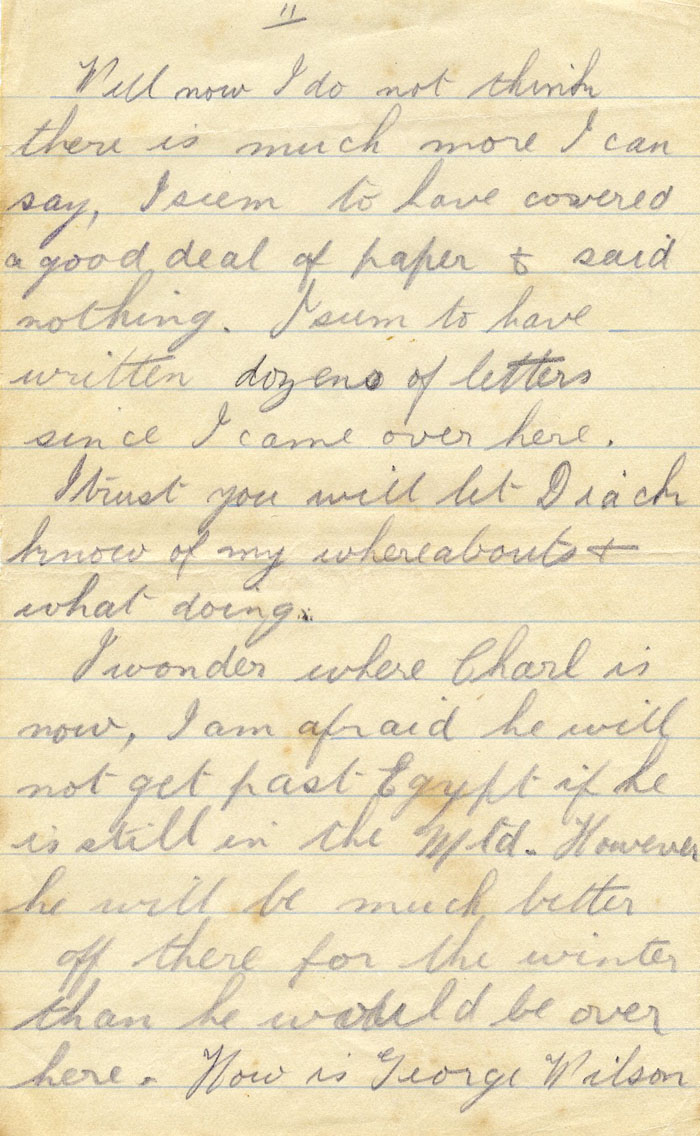 11
Well now I do not think
there is much more I can
say, I seem to have covered
a good deal of paper & said
nothing. I seem to have
written dozens of letters
since I came over here.
I trust you will let Diach
know of my whereabouts &
what doing.
I wonder where Charl is
now, I am afraid he will
not get past Egypt if he
is still in the Mtd. However
he will be much better
off there for the winter
than he would be over
here. How is George Wilson